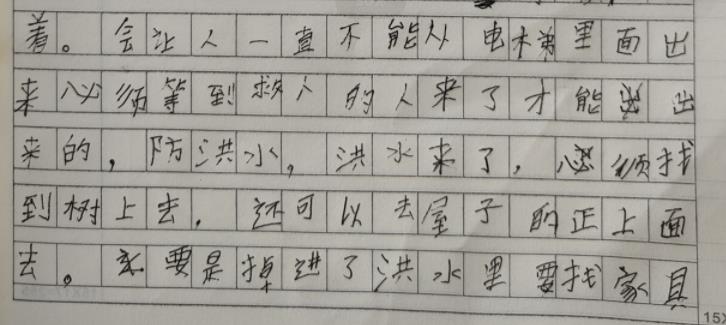 着。会让人一直不能从电梯里面出
来必须等到救人的人来了才能出
来的，防洪水，洪水来了，必须找
到树上去，还可以去屋子的正上面
去。要是掉进了洪水里要找家具
15